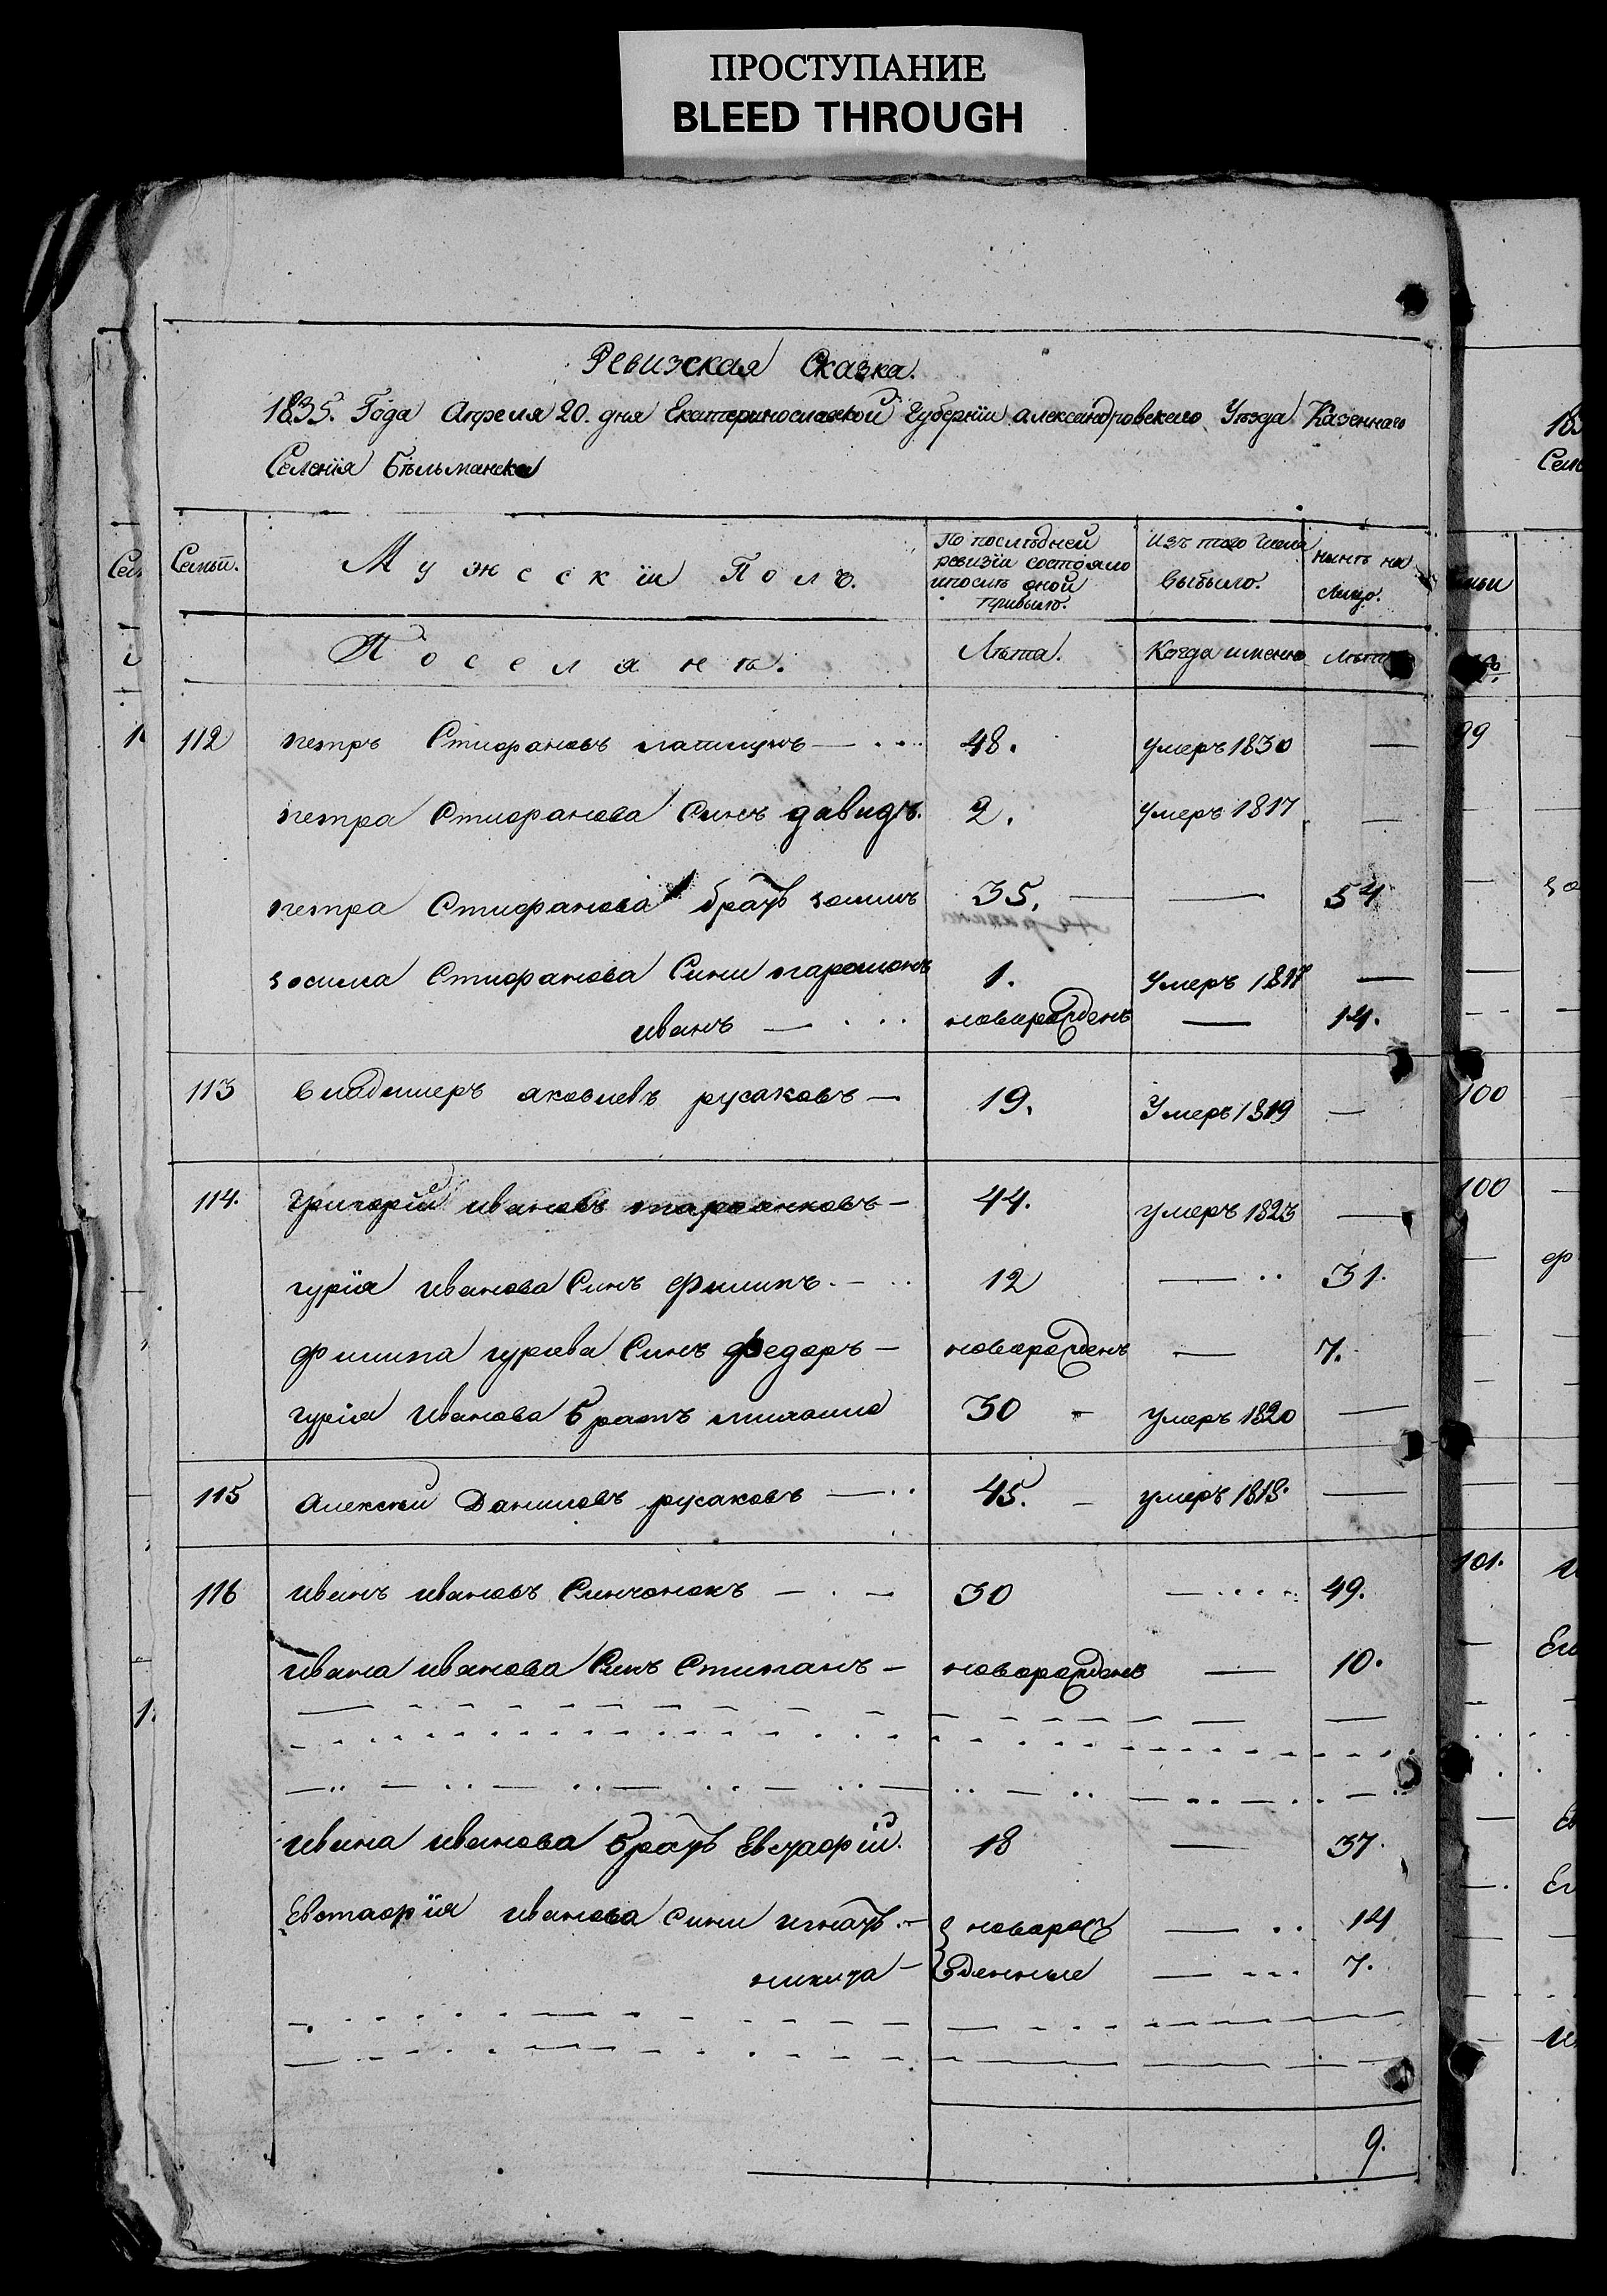 ПРОСТУПАНИЕ
BLEED THROUGH
Ревизская Сказка.
1835. Года Апреля 20. дня Екатеринославской Губернїи александровскаго Уезда Казеннаго
Селенїя Бѣльманска
Семьи. Мужескїи Полъ. По послѣдней ревизїи состояло ипослѣ оной прибыло. Изъ того числа выбыло. нынѣ на лицо.
Поселянъ. Лѣта. Когда именно Лѣта
112 петръ Стиофановъ 48. умеръ 1830 —
петра Стиофанова Синъ давидъ. 2. умеръ 1817 —
петра Стиофанова братъ зосимъ 35. — — 54
зосима Стиофанова Сини парамонъ 1. Умеръ 1817 —
иванъ — новорожденъ — 14.
113 владимеръ яковлевъ русаковъ — 19. Умеръ 1819 —
114. Григорїй ивановъ — 44. умеръ 1823 —
гурїя иванова Синъ филипъ. — 12 — 31.
филипа гурова Синъ федоръ — новорожденъ — 7.
гурїя Иванова братъ 30 — умеръ 1820 —
115 алексѣй Даниловъ русаковъ — 45. — умеръ 1818. —
116 иванъ ивановъ Синчонокъ — . — 30 — 49.
ивана иванова Синъ Стипанъ — новорожденъ — 10.
ивана иванова братъ Евстафїй. 18 — 37.
Евстафїя иванова сини игнатъ. — новорож — 14
никита — денные — 7.
9.